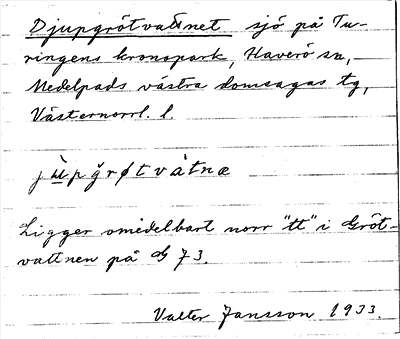 Djupgrötvattnet sjö på Tu-
ringens kronopark, Haverö sn,
Medelpads västra domsagas tg,
Västernorrl. l.
jùpgrøtvàtnæ
Ligger omedelbart norr "tt" i Gröt-
vattnen på G 73.
Valter Jansson 1933.